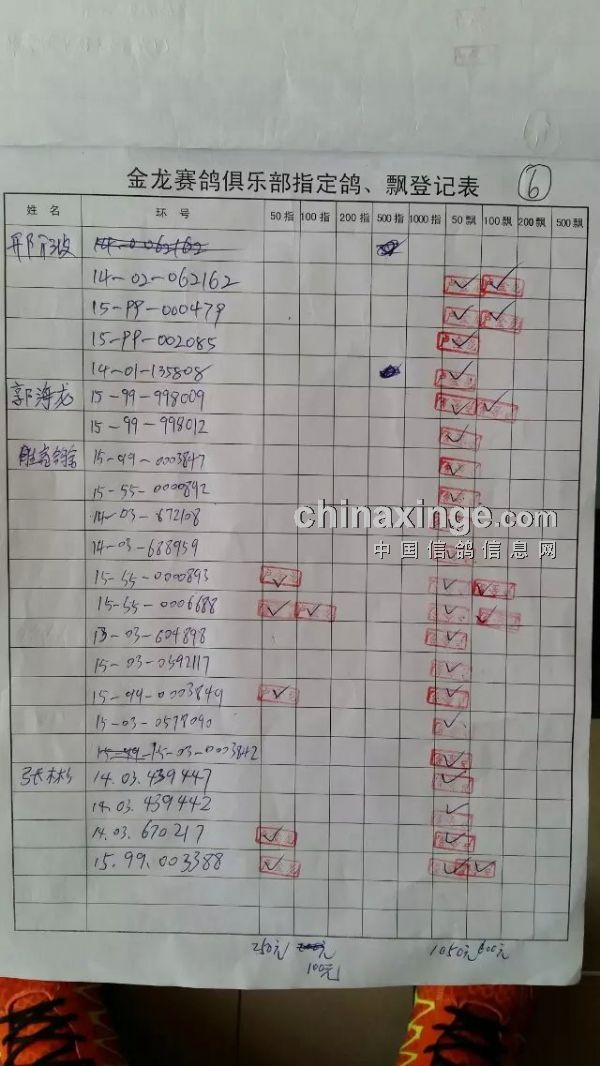 金龙赛鸽俱乐部指定鸽、飘登记表 ⑥
姓 名 环 号 50 指 100 指 200 指 500 指 1000 指 50 飘 100 飘 200 飘 500 飘
14-02-062162
14-02-062162 ✓ ✓
15-PP-000479 ✓ ✓
15-PP-002085 ✓
14-01-135808 ✓
郭海龙 15-99-998009 ✓ ✓
15-99-998012 ✓
15-99-0003847 ✓
15-55-0000892 ✓
14-03-672108
14-03-688959 ✓
15-55-0000893 ✓ ✓ ✓
15-55-0006688 ✓ ✓ ✓ ✓
13-03-604898 ✓
15-03-0392117 ✓
15-99-0003849 ✓ ✓
15-03-0578090 ✓
15-99-15-03-0003842 ✓
张彬 14.03.439447 ✓
14.03.439442 ✓
14.03.670217 ✓ ✓
15.99.003388 ✓ ✓ ✓
250元 1050元 600元
100元
chinaxinge.com
中国信鸽信息网